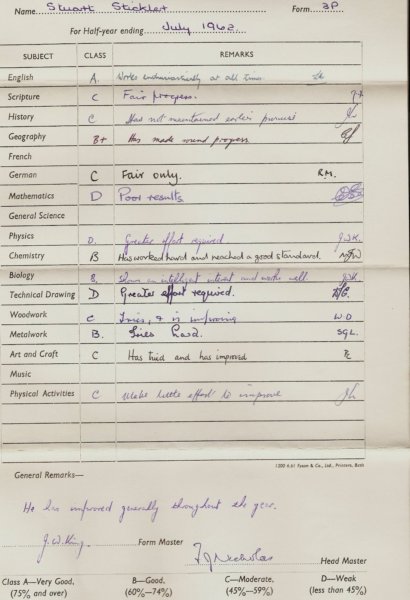 Name Stuart Stickler Form 3P
For Half-year ending July 1962
SUBJECT CLASS REMARKS
English A. Works enthusiastically at all times.
Scripture C Fair progress.
History C Has not maintained earlier promise
Geography B+ Has made sound progress
French
German C Fair only. R.M.
Mathematics D Poor results
General Science
Physics D. Greater effort required J.W.K.
Chemistry B Has worked hard and reached a good standard.
Biology B. Shows an intelligent interest and works well J.W.K.
Technical Drawing D Greater effort required.
Woodwork C Tries, & is improving W.D
Metalwork B. Tries hard. SGL.
Art and Craft C Has tried and has improved
Music
Physical Activities C Makes little effort to improve
1200 6.61 Tyson & Co., Ltd., Printers, Bath
General Remarks—
He has improved generally throughout the year.
J.W. King Form Master
F J Nicholas Head Master
Class A—Very Good, B—Good, C—Moderate, D—Weak
(75% and over) (60%—74%) (45%—59%) (less than 45%)